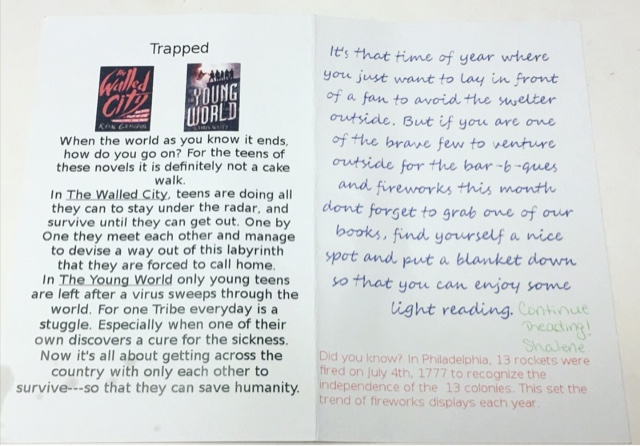 Trapped
The
Walled
City
THE
YOUNG
WORLD
When the world as you know it ends,
how do you go on? For the teens of
these novels it is definitely not a cake
walk.
In The Walled City, teens are doing all
they can to stay under the radar, and
survive until they can get out. One by
One they meet each other and manage
to devise a way out of this labyrinth
that they are forced to call home.
In The Young World only young teens
are left after a virus sweeps through the
world. For one Tribe everyday is a
stuggle. Especially when one of their
own discovers a cure for the sickness.
Now it's all about getting across the
country with only each other to
survive---so that they can save humanity.
It's that time of year where
you just want to lay in front
of a fan to avoid the swelter
outside. But if you are one
of the brave few to venture
outside for the bar-b-ques
and fireworks this month
dont forget to grab one of our
books, find yourself a nice
spot and put a blanket down
so that you can enjoy some
light reading. Continue
Treading!
Shalene
Did you know? In Philadelphia, 13 rockets were
fired on July 4th, 1777 to recognize the
independence of the 13 colonies. This set the
trend of fireworks displays each year.